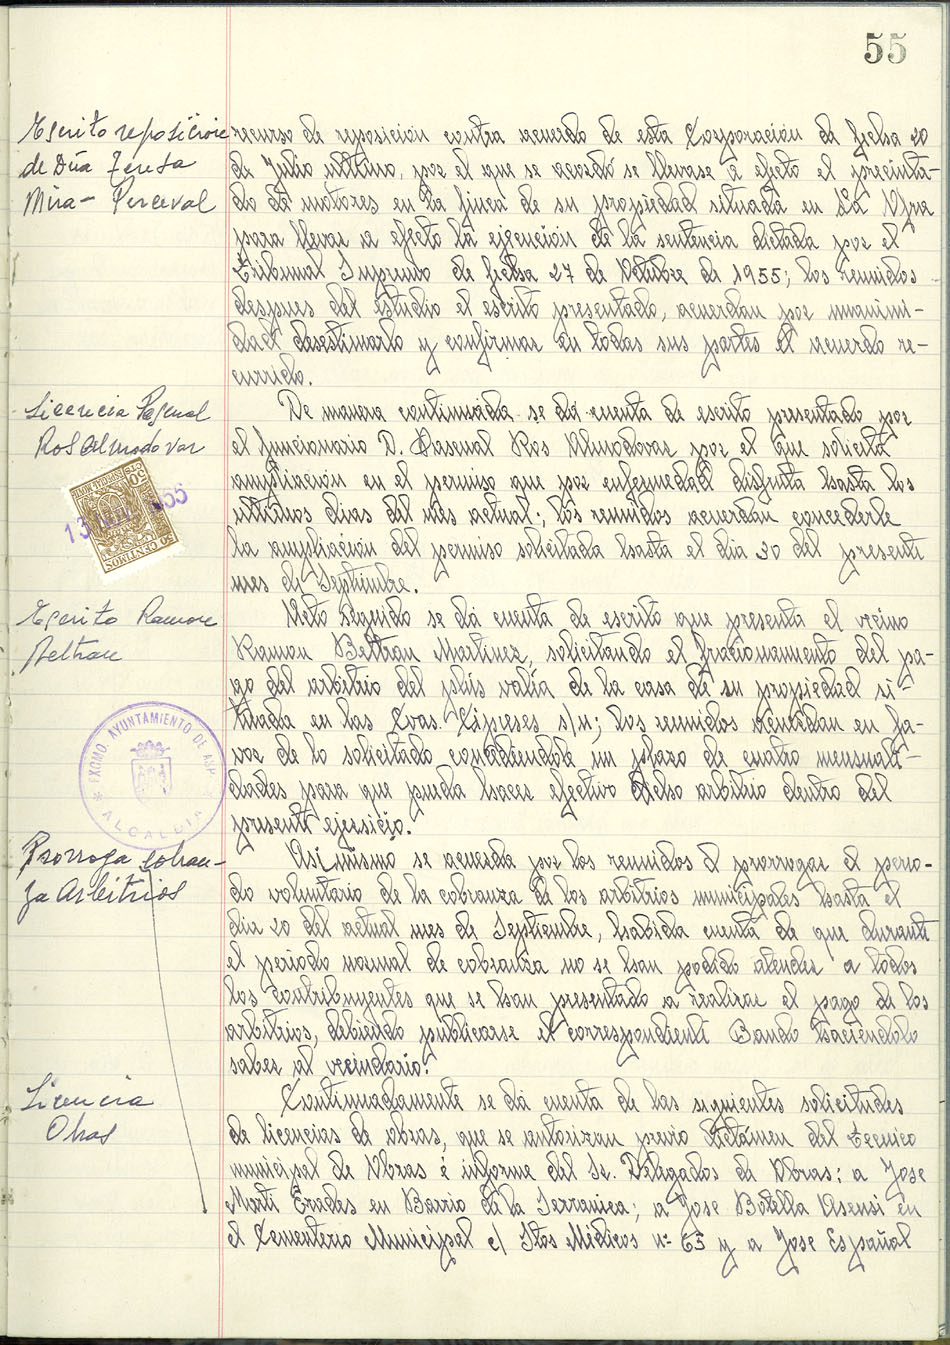 55
Escrito reposición
de Dña Teresa
Mira-Perceval
recurso de reposición contra acuerdo de esta Corporación de fecha 20
de Julio ultimo, por el que se acordó se llevase a efecto el precinta-
do de motores en la finca de su propiedad situada en La Ofra
para llevar a efecto la ejecución de la sentencia dictada por el
Tribunal Supremo de fecha 27 de Octubre de 1955; los reunidos
despues del estudio el escrito presentado, acuerdan por unanimi-
dad desestimarlo y confirmar en todas sus partes el acuerdo re-
currido.
Licencia Pascual
Ros Almodovar
De manera continuada se dá cuenta de escrito presentado por
el funcionario D. Pascual Ros Almodovar por el que solicita
ampliación en el permiso que por enfermedad disfruta hasta los
ultimos dias del mes actual; los reunidos acuerdan concederle
la ampliación del permiso solicitada hasta el dia 30 del presente
mes de Septiembre.
50 CENTIMOS
50 CTS
13 1955
Escrito Ramon
Beltran
Acto seguido se dá cuenta de escrito que presenta el vecino
Ramon Beltran Martinez, solicitando el fracionamiento del pa-
go del arbitrio del plus valia de la casa de su propiedad si-
tuada en las Cvas. Cipreses s/n; los reunidos acuerdan en fa-
vor de lo solicitado concediendole un plazo de cuatro mensuali-
dades para que pueda hacer efectivo dicho arbitrio dentro del
presente ejersicio.
EXCMO. AYUNTAMIENTO DE ASPE
ALCALDIA
Prorroga cobran-
za Arbitrios
Asi mismo se acuerda por los reunidos el prorrogar el perio-
do voluntario de la cobranza de los arbitrios municipales hasta el
dia 20 del actual mes de Septiembre, habida cuenta de que durante
el periodo normal de cobranza no se han podido atender a todos
los contribuyentes que se han presentado a realizar el pago de los
arbitrios, debiendo publicarse el correspondiente Bando haciendolo
saber al vecindario.
Licencia
Obras
Continuadamente se dá cuenta de las siguientes solicitudes
de licencias de obras, que se autorizan previo dictámen del tecnico
municipal de Obras é informe del Sr. Delegados de Obras: a Jose
Marti Erades en Barrio de la Serranica; a Jose Botella Asensi en
el Cementerio Municipal c/ Stos Médicos nº 63 y a Jose Español